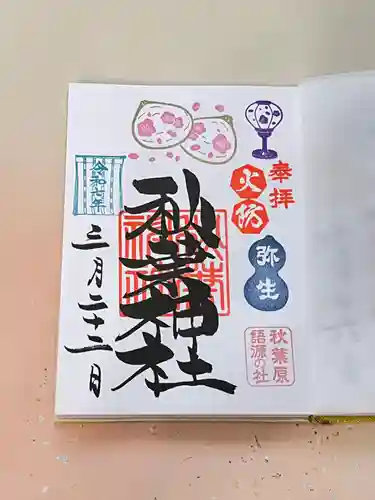 奉拝
火防
弥生
秋葉原
語源の社
秋葉神社
令和七年
三月二十二日